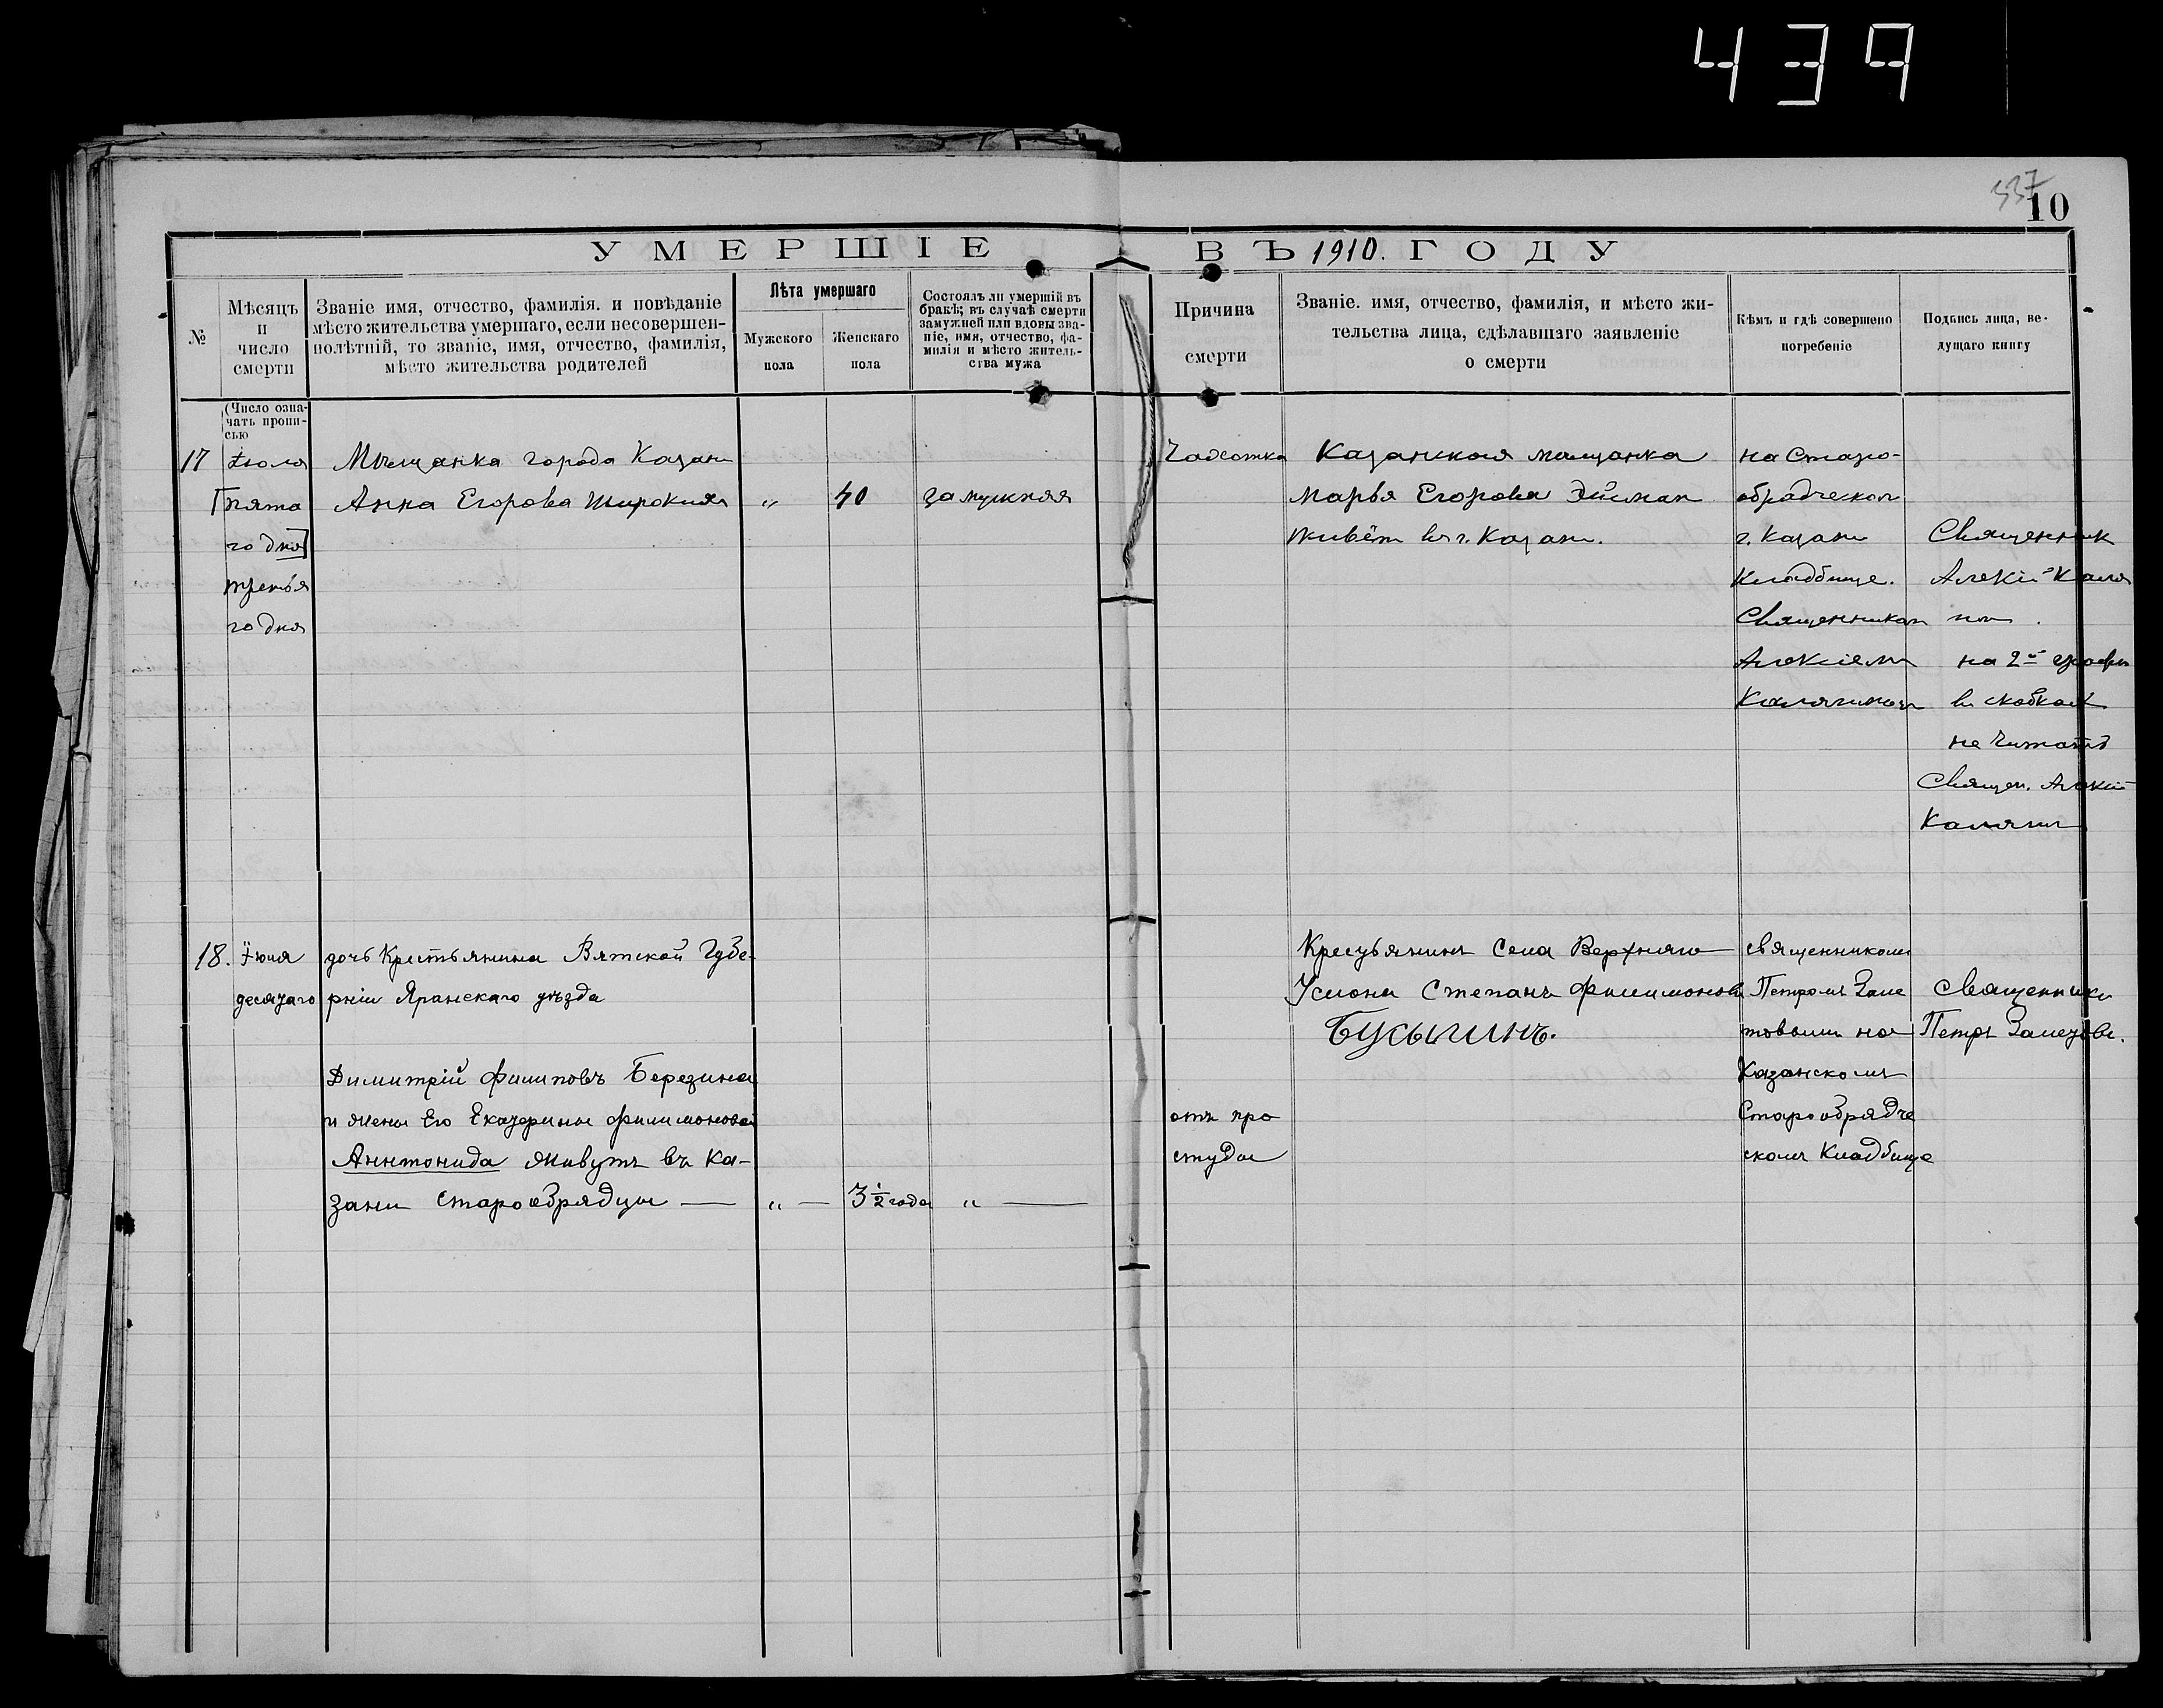 439
337
10
УМЕРШІЕ ВЪ 1910. ГОДУ
№
Мѣсяцъ
и
число
смерти
Званіе имя, отчество, фамилія. и повѣданіе
мѣсто жительства умершаго, если несовершен-
нолѣтній, то званіе, имя, отчество, фамилія,
мѣсто жительства родителей
Лѣта умершаго
Мужского
пола
Женскаго
пола
Состоялъ ли умершій въ
бракѣ; въ случаѣ смерти
замужней или вдовы зва-
ніе, имя, отчество, фа-
милія и мѣсто житель-
ства мужа
Причина
смерти
Званіе. имя, отчество, фамилія, и мѣсто жи-
тельства лица, сдѣлавшаго заявленіе
о смерти
Кѣмъ и гдѣ совершено
погребеніе
Подпись лица, ве-
дущаго книгу
(Число озна-
чать пропи-
сью
17
Іюля
[пята
го дня]
третья
го дня
Мѣщанка города Казани
Анна Егорова Широкихъ
„
40
замужняя
Чахотка
Казанская мѣщанка
Марья Егорова
живёт въ г. Казани.
на Старо-
обрядческом
г. Казани
Кладбище.
Священником
Алексіем
Калягиным
Священник
Алексій Каля
гин.
на 2й графы
въ скобках
не читать
Священ. Алексій
Калягин
18.
Іюля
десятаго
дочь Крестьянина Вятской Губе-
рніи Яранскаго уѣзда
Димитрій Филиповъ Березина
и жены Его Екатерины Филимоновой
Аннтонида живутъ въ Ка-
зани Старообрядцы —
„ —
3 1/2 года
„ —
отъ про
студы
Крестьянинъ Села Верхняго
Услона Степанъ Филимоновъ
Бусыгинъ.
священникомъ
Петромъ Зале
товымъ на
Казанскомъ
Старообрядче
скомъ Кладбище
Священникъ
Петръ Залетовъ.